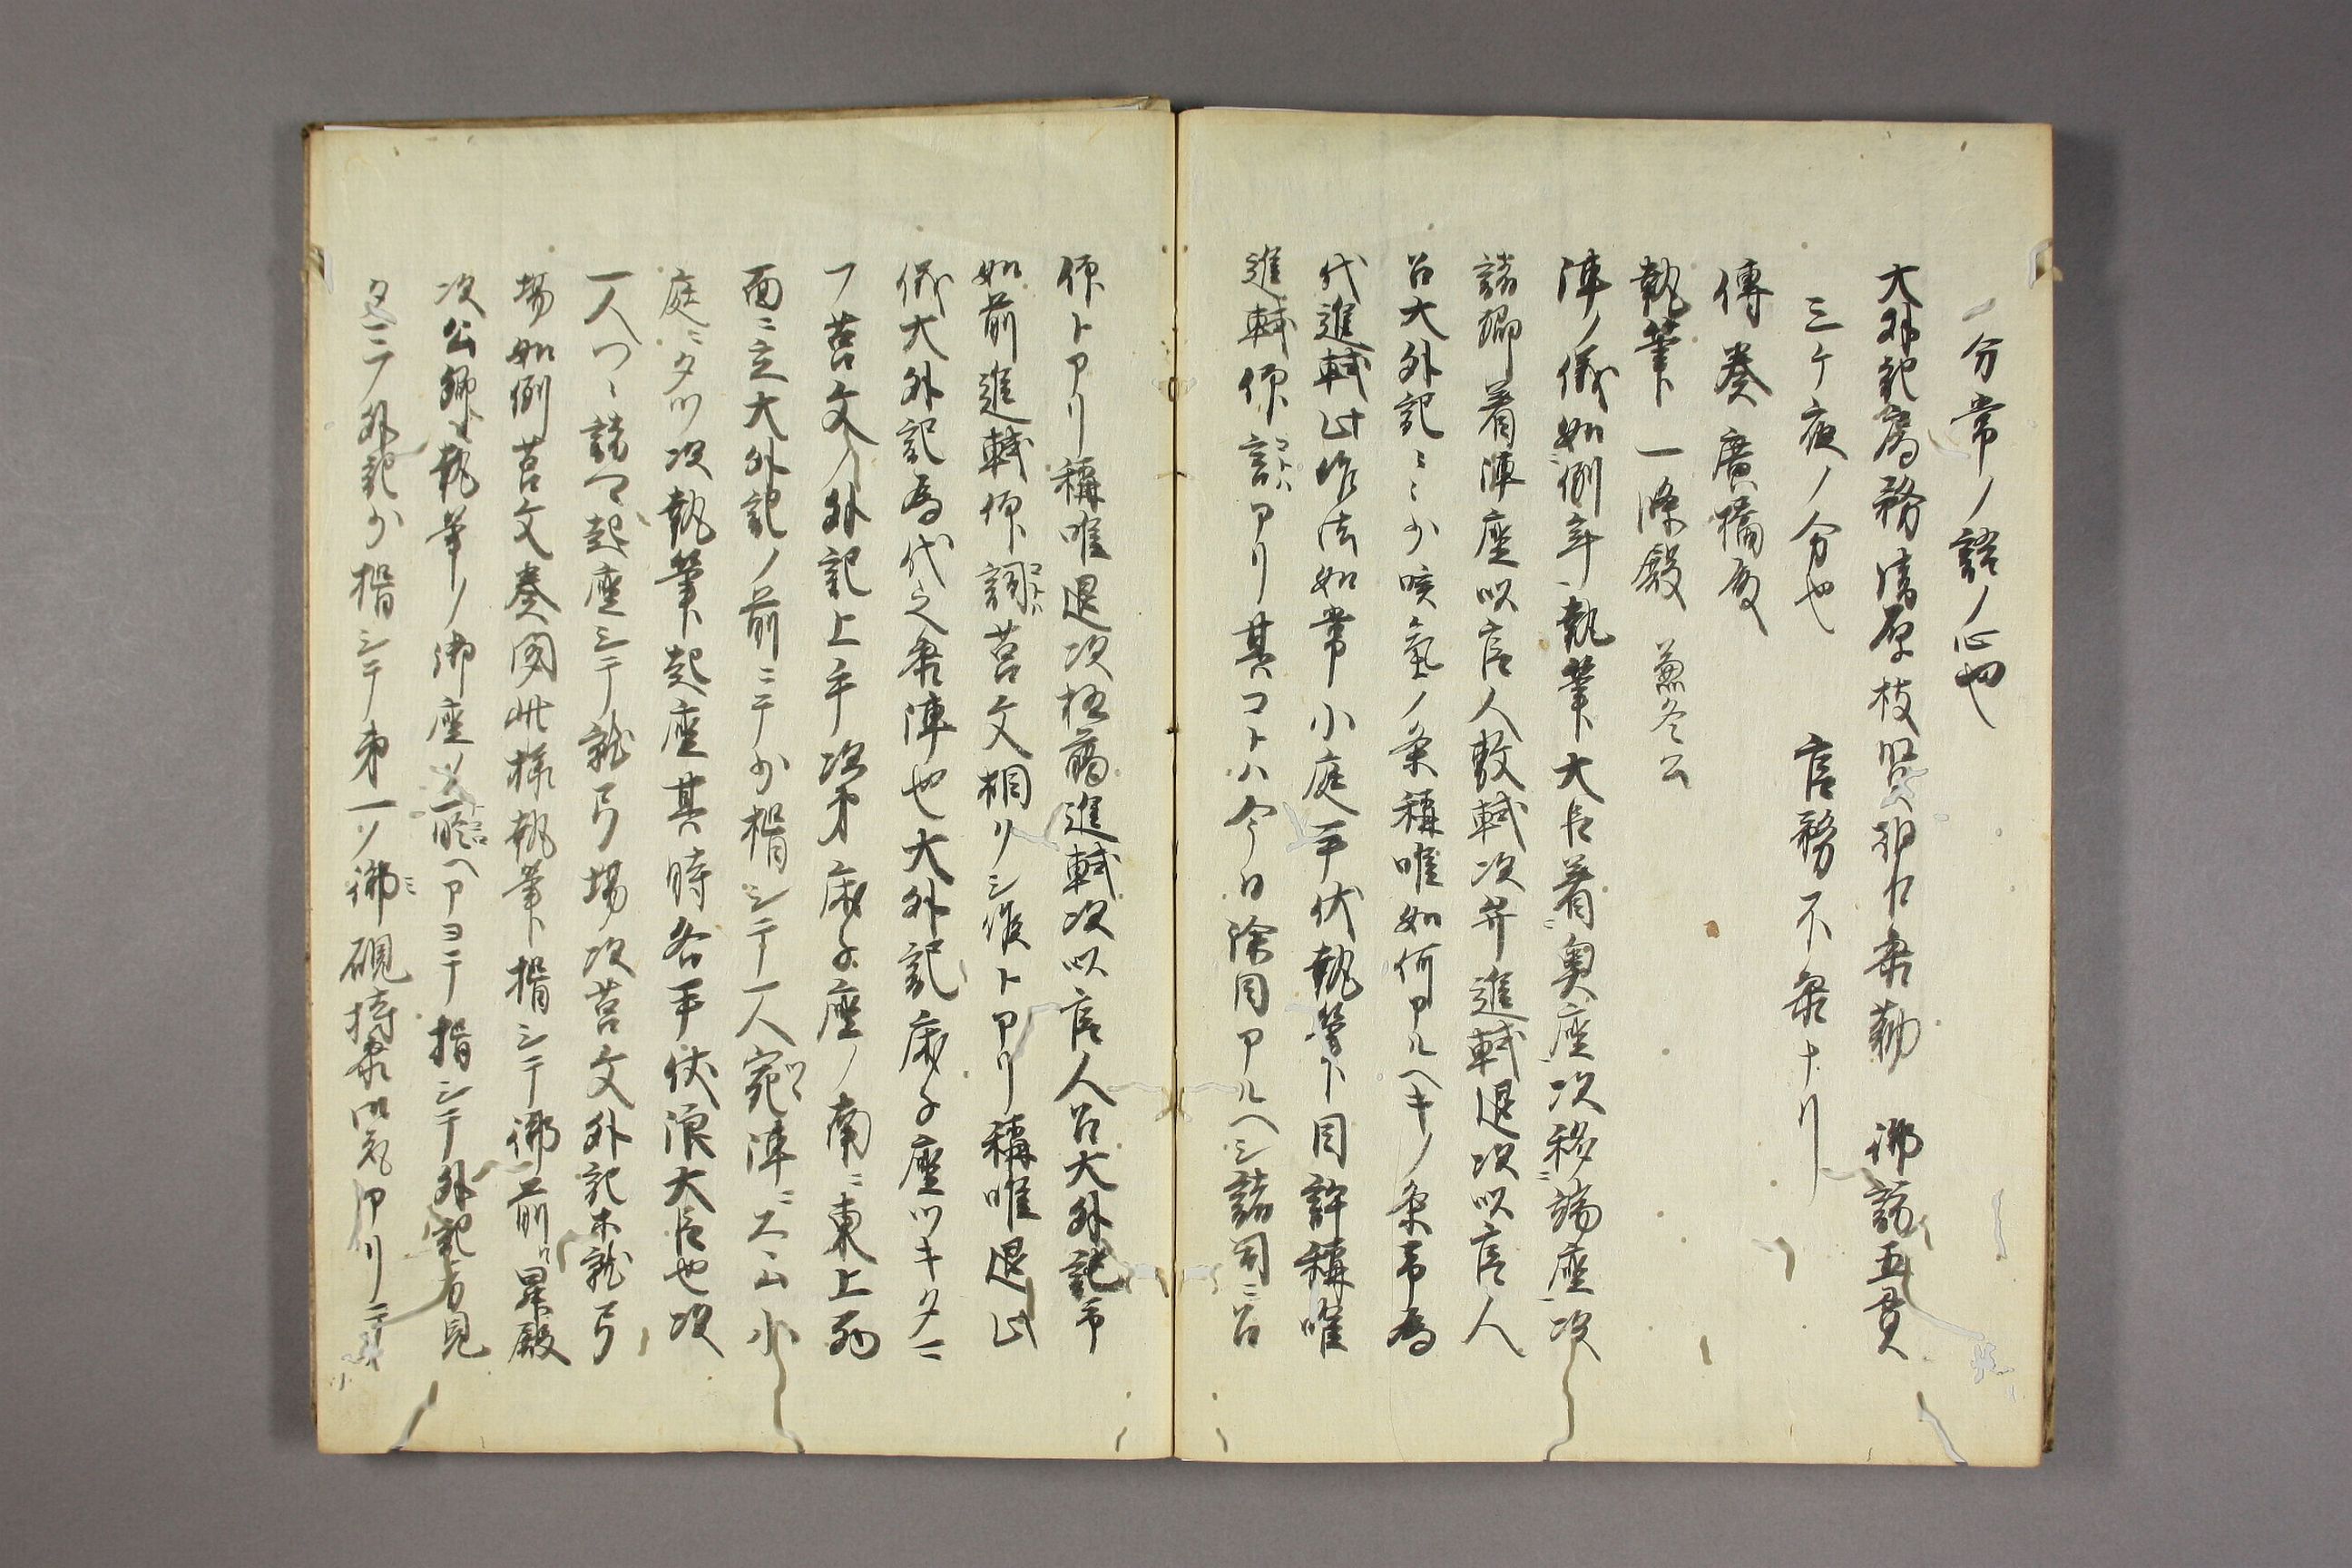 一分常ノ語ノ心也
大外記局務清原枝賢朝臣参勤 御訪五貫
三ケ夜ノ分也 官務不参ナリ
傳奏 廣橋殿
執筆 一條殿 兼冬公
陣ノ儀如例年執筆大臣着奥座次移端座次
諸卿着陣座以官人敷軾次弁進軾退次以官人
召大外記ミミ少咳氣ノ条稱唯如何アルヘキノ条弟為
代進軾此作法如常小庭平伏執筆目許稱唯
進軾仰詞コトハアリ其コトハ今日除目アルヘシ諸司ニ召
仰トアリ稱唯退次枝賢進軾次以官人召大外記弟
如前進軾仰詞コトハ筥文相リシ候トアリ稱唯退此
儀大外記為代之参陣也大外記床子座ツキタニ
フ筥文ノ外記上手次第床子座ノ南ニ東上
面ニ立大外記ノ前ニテ少揖シテ一人宛陣ニスヽム小
庭ニタツ次執筆起座其時各平伏浪大臣也次
一人ツヽ諸卿起座シテ就弓場次筥文外記木就弓
場如例筥文奏聞此様執筆揖シテ御前昇殿
次公卿執筆ノ御座ノ前ヘアヨテ揖シテ外記方見
タニフ外記少揖シテ第一ソ御硯持参御気アリ